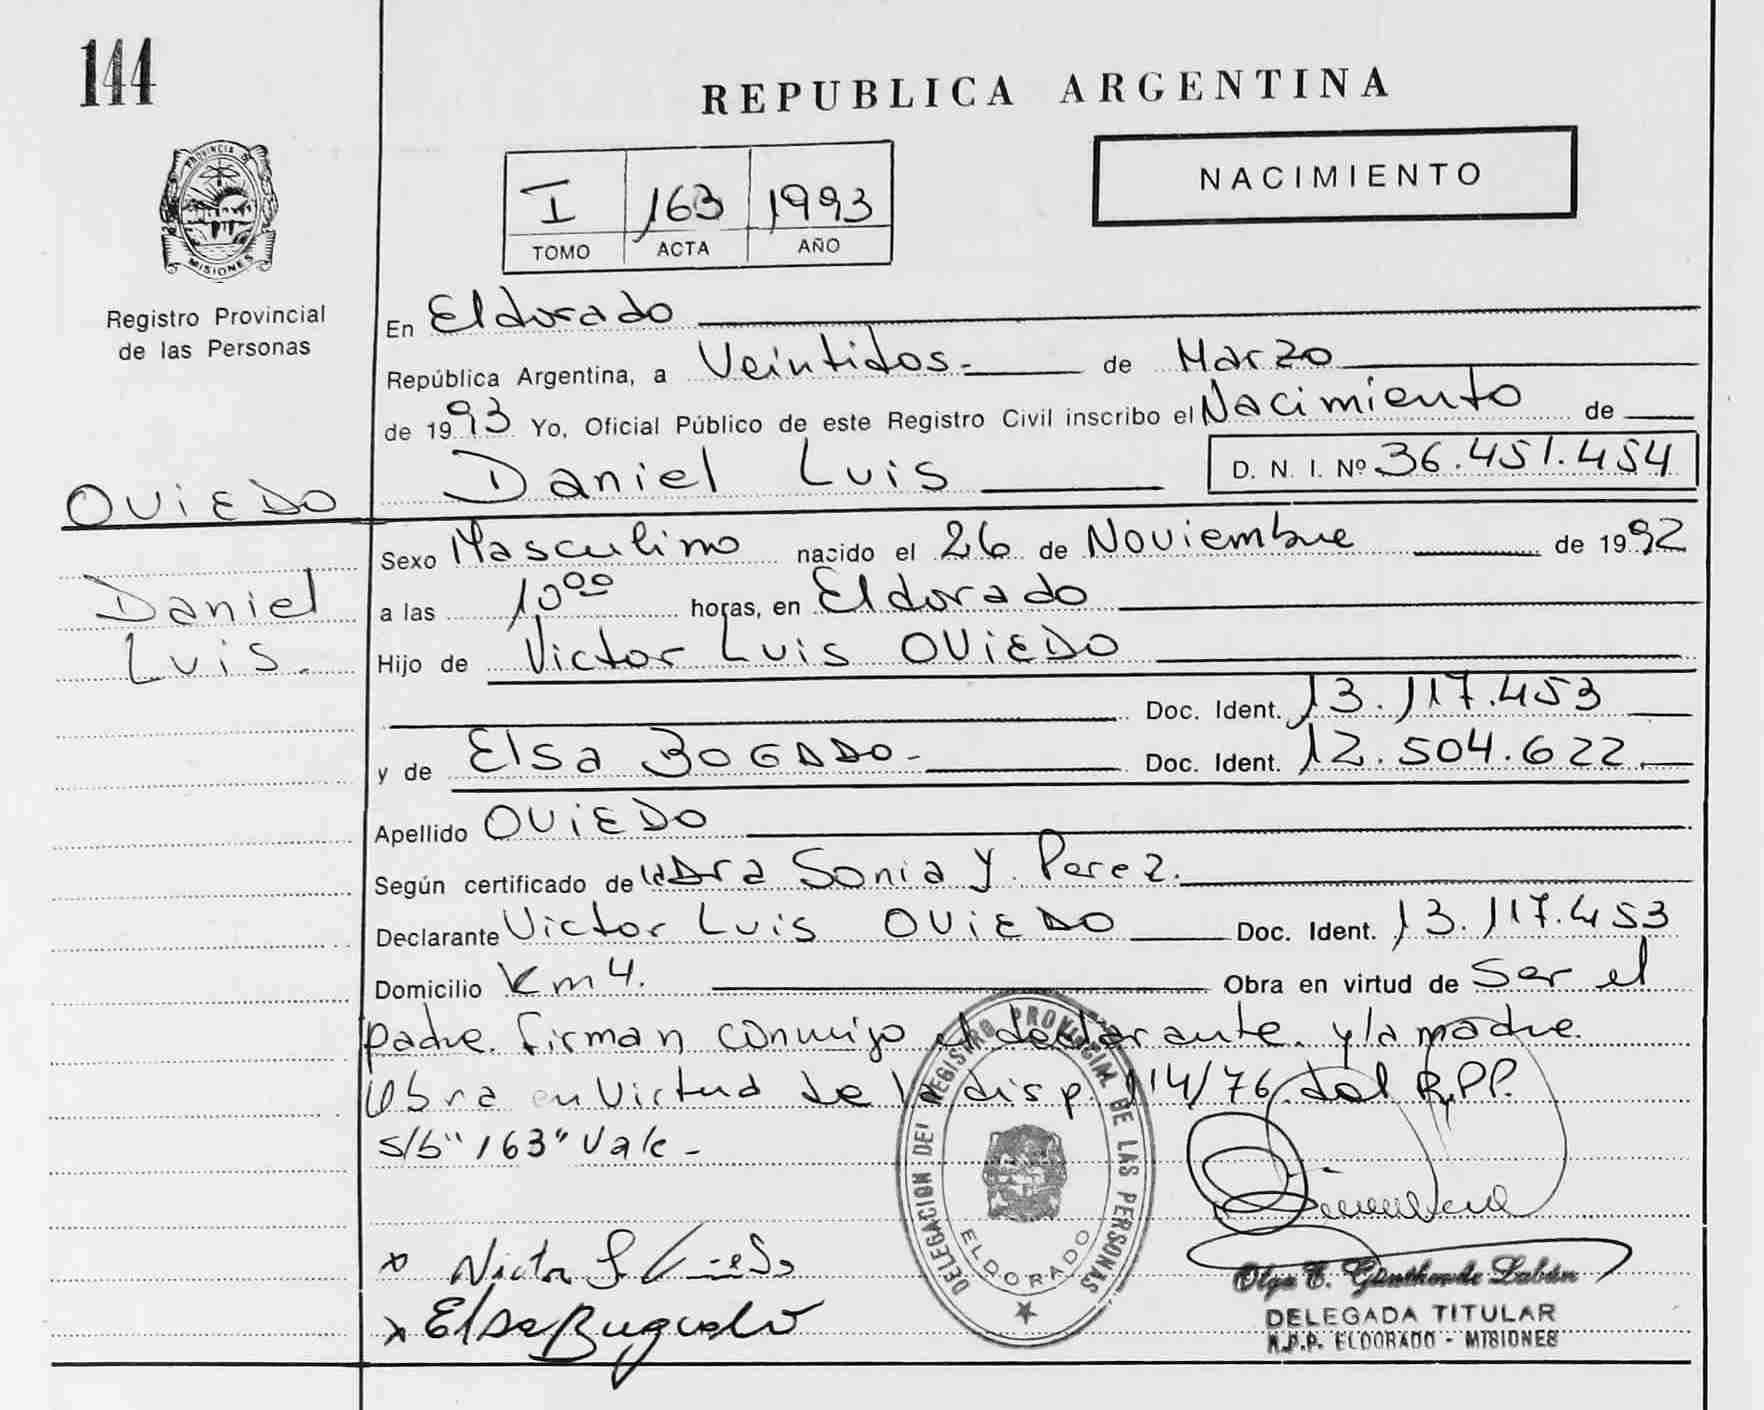 144
REPUBLICA ARGENTINA
PROVINCIA DE
MISIONES
Registro Provincial
de las Personas
I 163 1993
TOMO ACTA AÑO
NACIMIENTO
En Eldorado
República Argentina, a Veintidos- de Marzo
de 1993 Yo, Oficial Público de este Registro Civil inscribo el Nacimiento de
Daniel Luis D. N. I. Nº 36.451.454
OVIEDO
Daniel
Luis.
Sexo Masculino nacido el 26 de Noviembre de 1992
a las 10⁰⁰ horas, en Eldorado
Hijo de Victor Luis OVIEDO
Doc. Ident. 13.117.453
y de Elsa BOGADO- Doc. Ident. 12.504.622
Apellido OVIEDO
Según certificado de la Dra Sonia Y. Perez.
Declarante Victor Luis OVIEDO Doc. Ident. 13.117.453
Domicilio Km 4. Obra en virtud de Ser el
padre. firman conmigo el declarante. y la madre.
Obra en Virtud de la disp. 114/76. del R.P.P.
s/b "163" Vale-
DELEGACION DEL REGISTRO PROVINCIAL DE LAS PERSONAS
ELDORADO
x Victor L. Oviedo
x Elsa Bogado
Olga E. Günther de Labán
DELEGADA TITULAR
R.P.P. ELDORADO - MISIONES